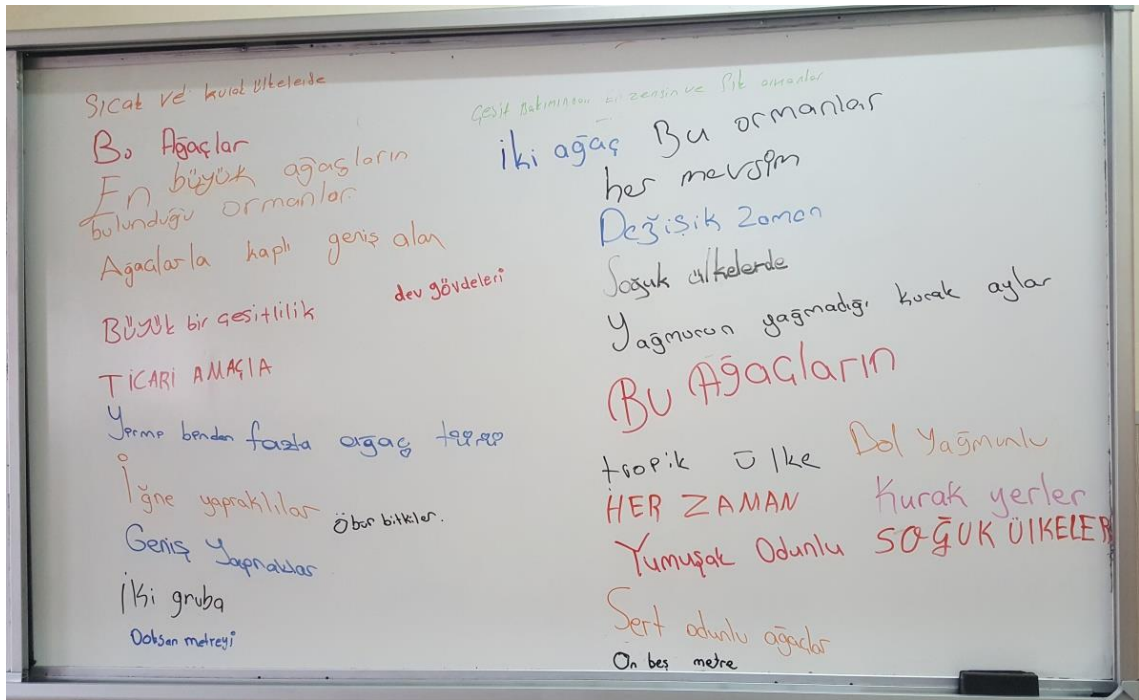 Sıcak ve kurak ülkelerde
B. Ağaçlar
En büyük ağaçların
bulunduğu ormanlar.
Ağaçlarla kaplı geniş alan
dev gövdeleri
Büyük bir çeşitlilik
TİCARİ AMAÇLA
benden fazla
İğne yapraklılar
Öbür bitkiler.
Geniş Yapraklılar
İki gruba
Doksan metreyi
Çeşit Bakımından zengin ve ormanlar
İki ağaç Bu ormanlar
her mevsim
Değişik Zaman
Soğuk ülkelerde
Yağmurun yağmadığı kurak aylar
Bu Ağaçların
tropik ülke
Bol Yağmurlu
HER ZAMAN
Kurak yerler
Yumuşak Odunlu
SOĞUK ÜLKELER
Sert odunlu ağaçlar
On beş metre